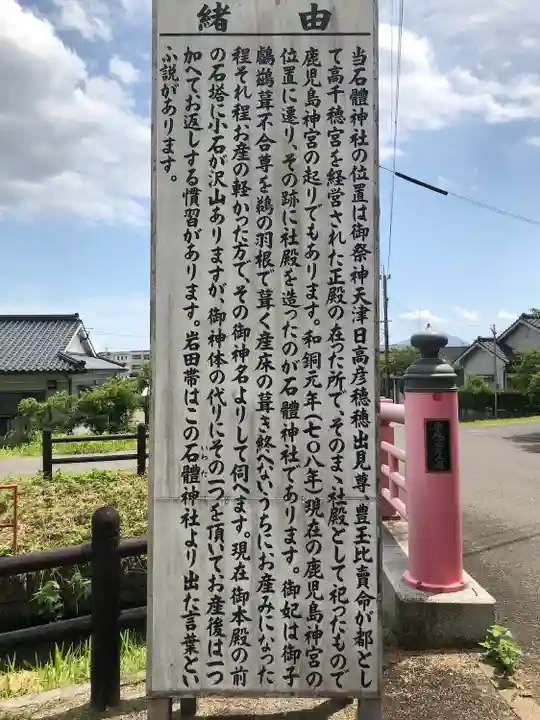 由緒
当石體神社の位置は御祭神天津日高彦穂穂出見尊 豊玉比賣命が都とし
て高千穂宮を経営された正殿の在った所で、そのまゝ社殿として祀ったもので
鹿児島神宮の起りでもあります。和銅元年(七〇八年)現在の鹿児島神宮の
位置に遷り、その跡に社殿を造ったのが石體神社であります。御妃は御子
鸕鷀葺不合尊を鵜の羽根で葺く産床の葺き終へないうちにお産みになった
程それ程お産の軽かった方で、その御神名よりして伺へます。現在御本殿の前
の石塔に小石が沢山ありますが、御神体の代りにその一つを頂いてお産後は一つ
加へてお返しする慣習があります。岩田帯はこの石體神社より出た言葉とい
ふ説があります。
いわた